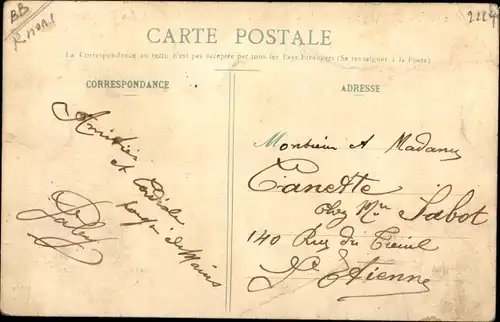 BB
CARTE POSTALE
La Correspondance au recto n'est pas acceptée par tous les Pays Étrangers (Se renseigner à la Poste)
CORRESPONDANCE
ADRESSE
Amitiés
et Cordiale
poignée de Mains
Monsieur et Madame
Canette
chez Mr Sabot
140 Rue du Treuil
St Etienne